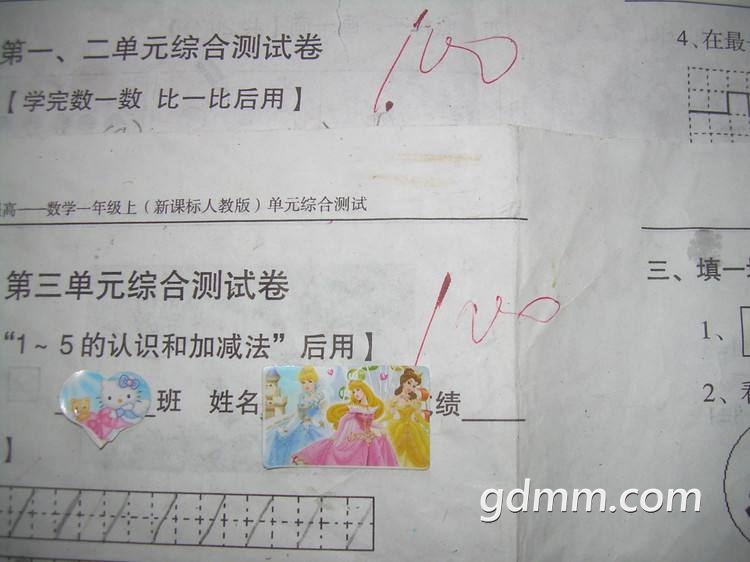 第一、二单元综合测试卷
100
4、在最
【学完数一数 比一比后用】
高——数学一年级上（新课标人教版）单元综合测试
第三单元综合测试卷
100
三、填一
“1～5的认识和加减法”后用】
1、
班 姓名 绩
2、
】
gdmm.com